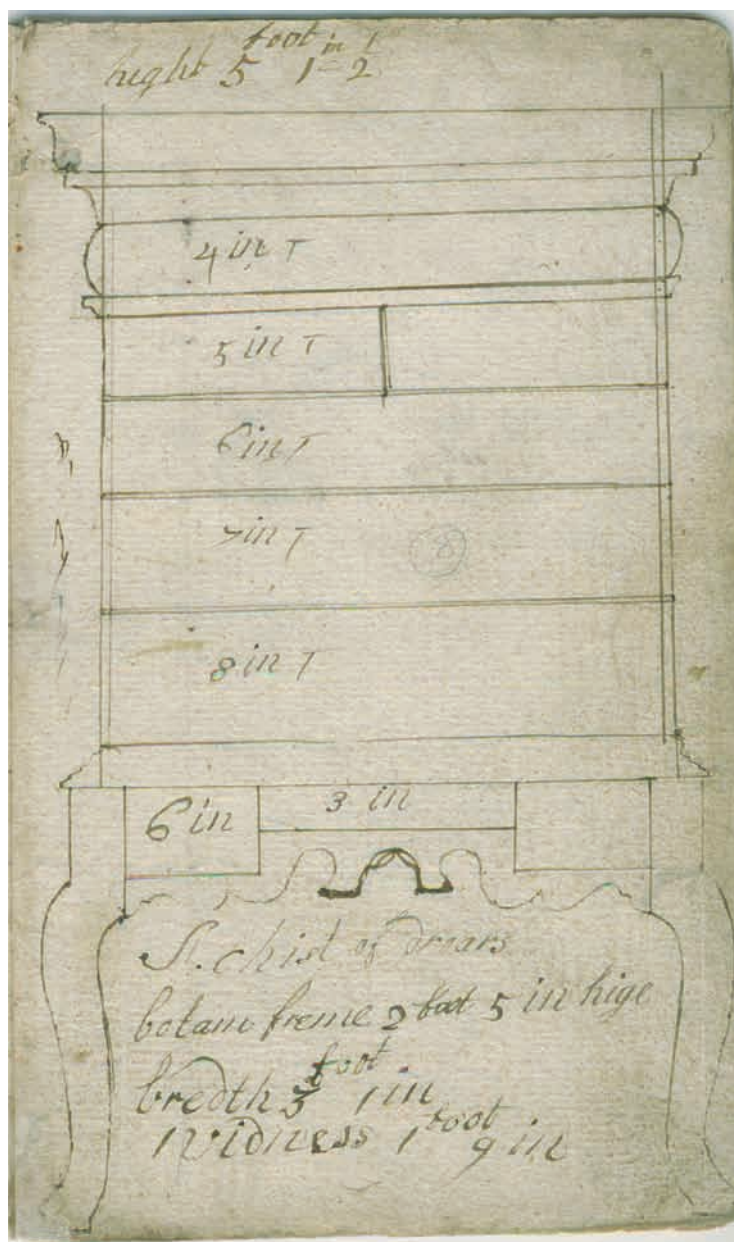 hight 5 foot 1 in 1/2
4 in T
5 in T
6 in T
7 in T
8 in T
6 in
3 in
of droars
botam freme 2 foot 5 in hige
bredth 3 foot 1 in
widness 1 foot 9 in